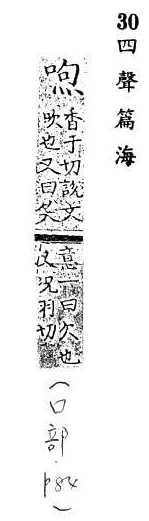 30 四聲篇海
呴
香于切說文
吹也又曰欠
意一曰欠也
又況羽切
(口部.p84)